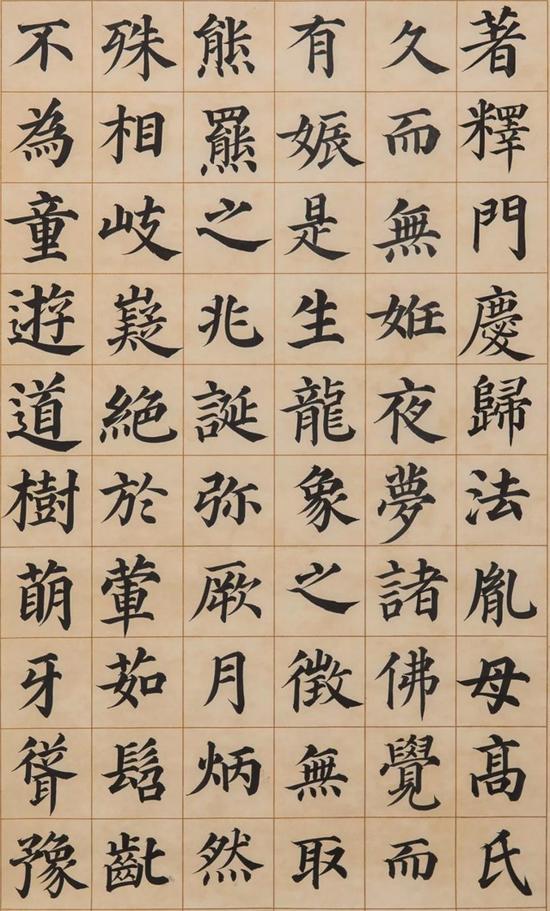 著釋門慶歸法胤母高氏
久而無姙夜夢諸佛覺而
有娠是生龍象之徵無取
熊羆之兆誕弥厥月炳然
殊相岐嶷絕於葷茹髫齔
不為童遊道樹萌牙聳豫